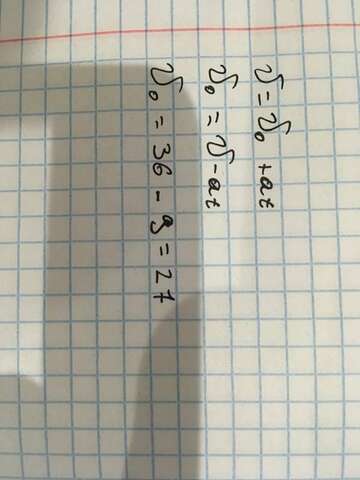 v = v₀ + at
v₀ = v - at
v₀ = 36 - 9 = 27